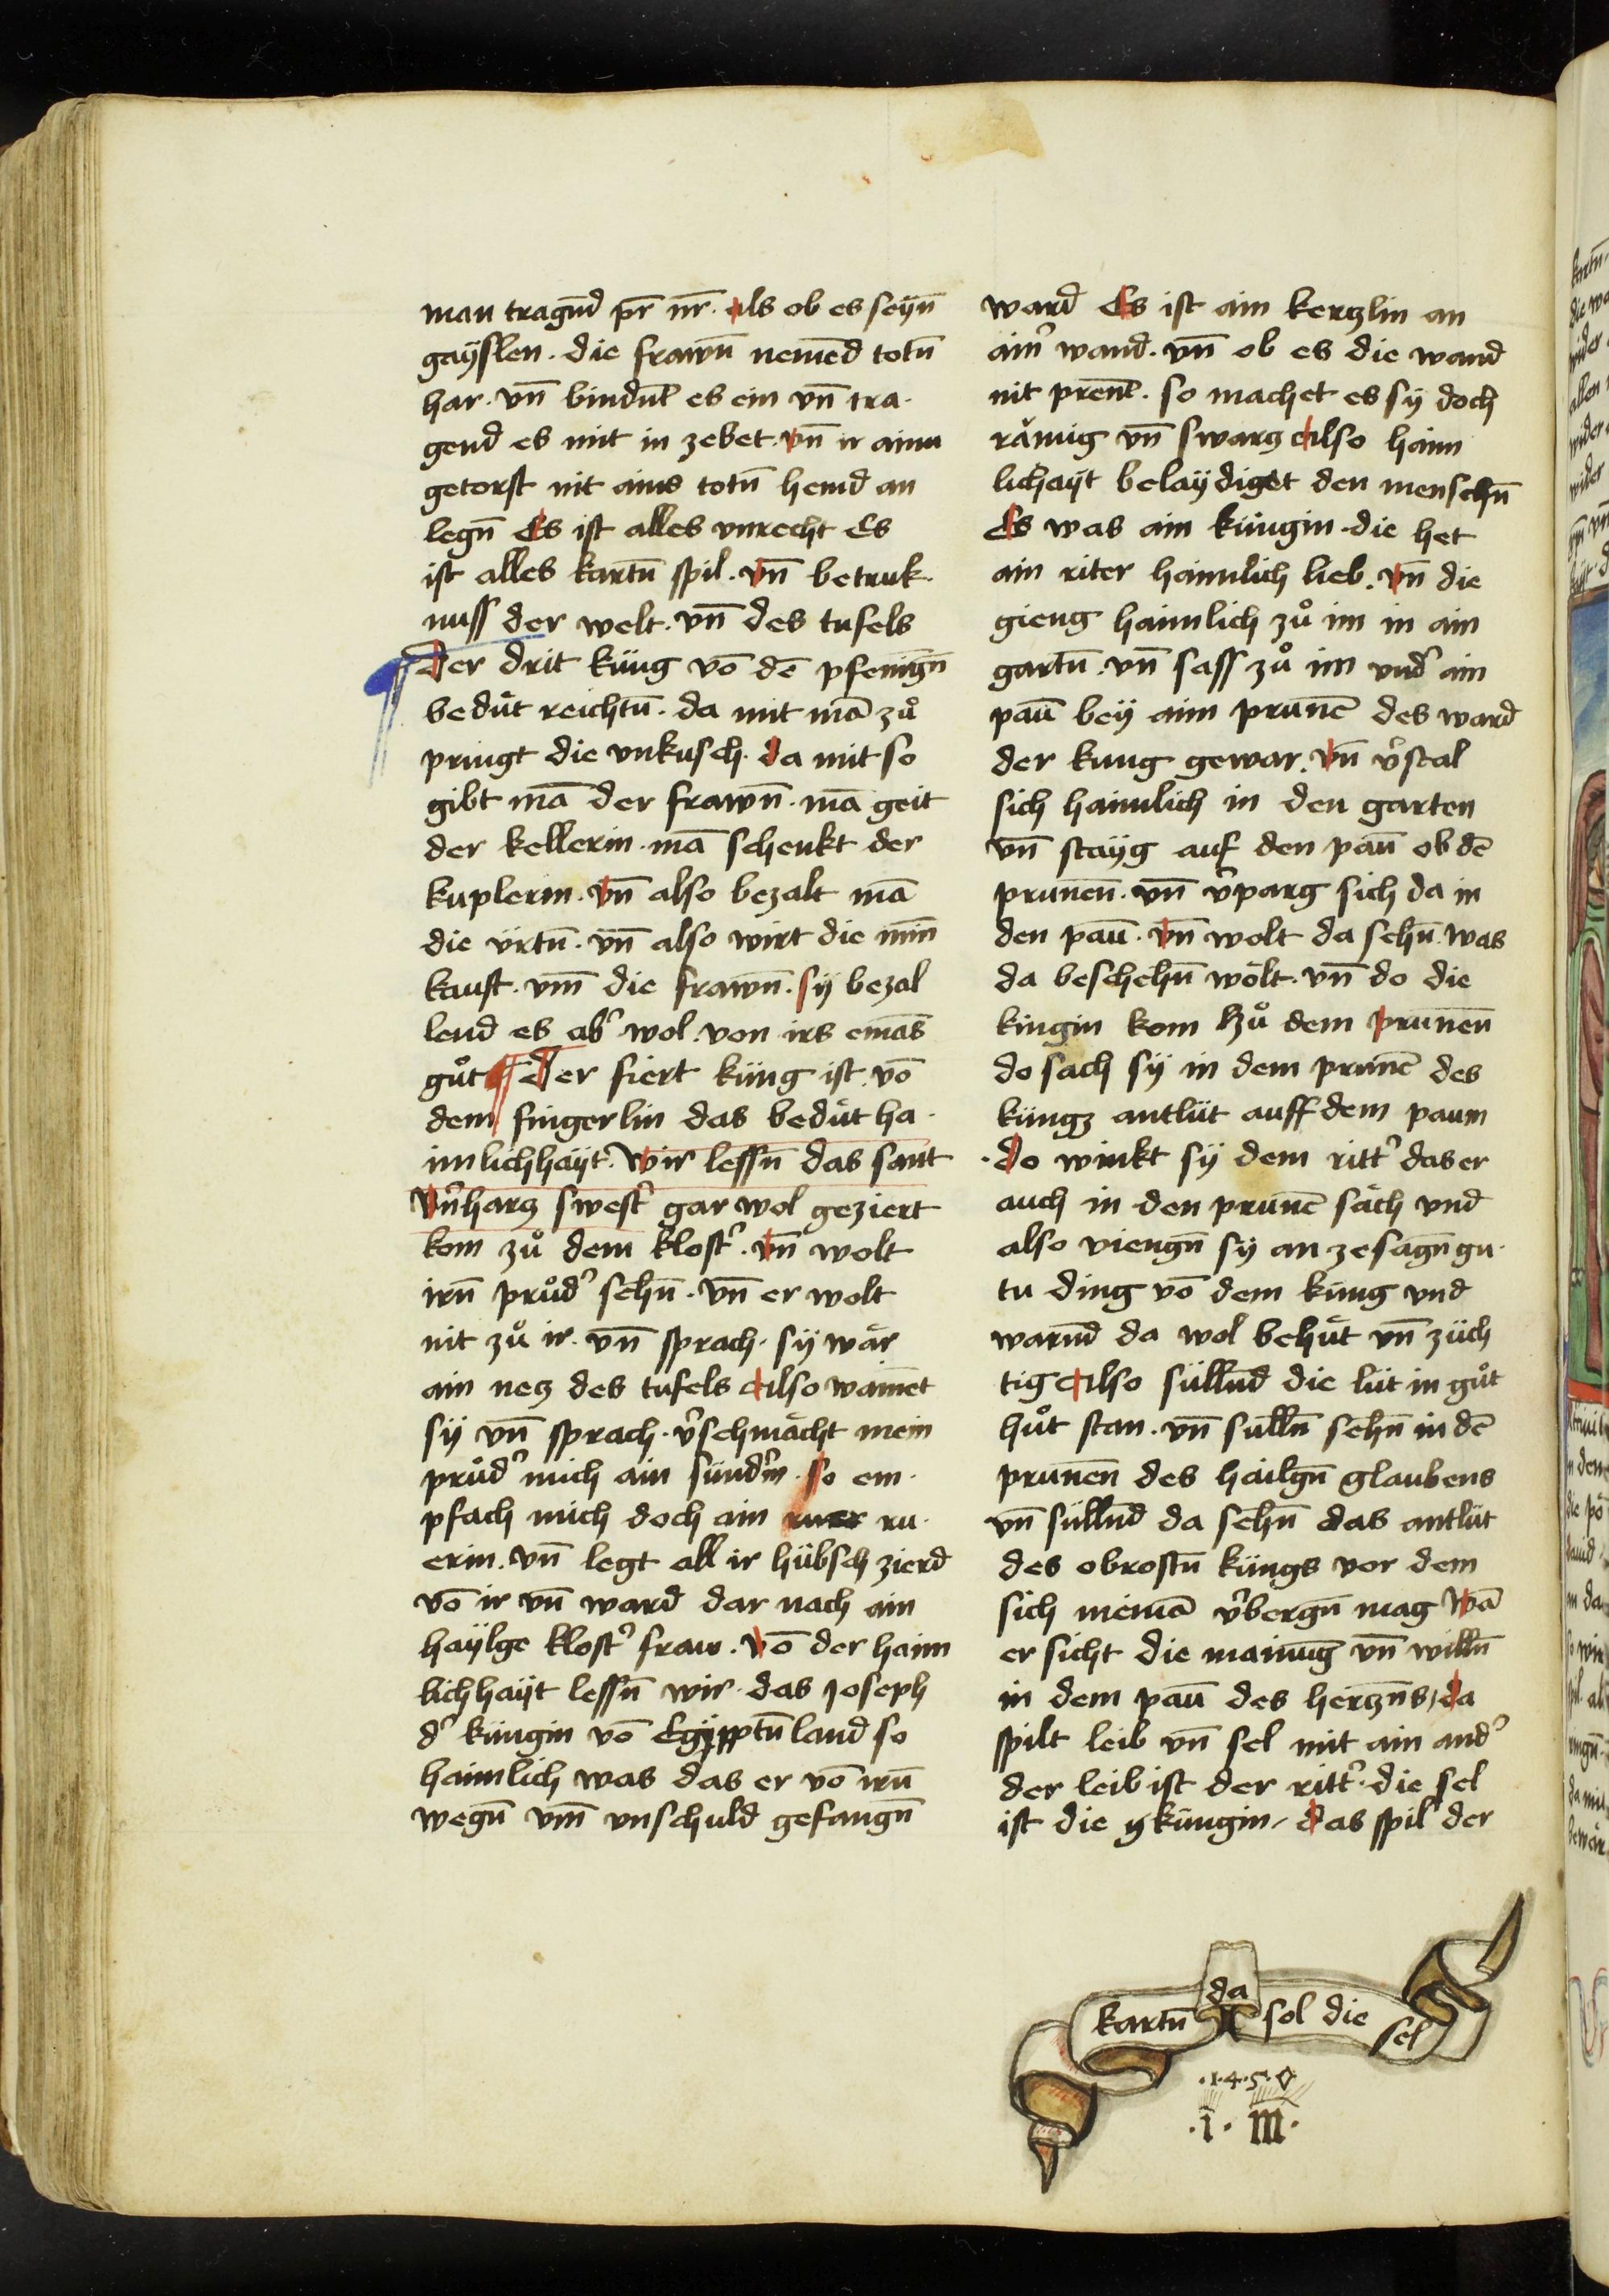 man tragn̄d pr̄ nr̄ · als ob es seyn̄
gaÿslen · die frawn̄ nemēd totn̄
har · vn̄ bindn̄t es ein vn̄ tra·
gend es mit in zebet · vn̄ ir ainu
getorst nit ains totn̄ hemd an
legn̄ Es ist alles vnrecht Es
ist alles kartn̄ spil · vn̄ betruk·
nuss der welt · vn̄ des tufels
Der drit küng vō dē pfenīgn̄
bedu̍t reichtū · da mit mā zů
pringt die vnkusch · da mit so
gibt mā der frawn̄ · mā geit
der kellerin · mā schenkt der
kuplerin · vn̄ also bezalt mā
die ürtn̄ · vn̄ also wirt die min̄
kauft · vm̄ die frawn̄ · sy bezal
lend es ab̉ wol · von irs emās
gůt Der fiert küng ist · vō
dem fingerlin das bedüt ha·
imlichhaÿt · wir lessn̄ das sant
vn̉harcz swest̉ gar wol geziert
kom zů dem klost̉ · vn̄ wolt
irn̄ průd̉ sehn̄ · vn̄ er wolt
nit zů ir · vn̄ sprach · sy wär
ain necz des tufels Also wainēt
sy vn̄ sprach · v̉schmächt mein
průd̉ mich ain sünd̉in · so em·
pfach mich doch ain ruer ru·
erin · vn̄ legt all ir hübsch zierd
vō ir vn̄ ward dar nach ain
haÿlge klost̉ fraw · Vō der haim
lichhaÿt lessn̄ wir · das Joseph
d̉ küngin vō Egÿpptn̄ land so
haimlich was das er vō irn̄
wegn̄ vm̄ vnschuld gefangn̄
ward Es ist ain kerczlin an
ain̉ wand · vn̄ ob es die wand
nit pren̄t · so machet es sy doch
rämig vn̄ swarcz Also haim
lichaÿt belaÿdiget den menschn̄
Es was ain küngin · die het
ain riter haimlich lieb · vn̄ die
gieng haimlich zů im in ain
gartn̄ · vn̄ sass zů im vnd̉ ain
paū bey aim prunē des ward
der kung gewar · vn̄ v̉stal
sich haimlich in den garten
vn̄ staÿg auf den paū ob dē
prunēn · vn̄ v̉parg sich da in
den paū · vn̄ wolt da sehn̄ was
da beschehn̄ wölt · vn̄ do die
kingin kom zů dem prunēn
do sach sy in dem prunē des
küngz antlüt auff dem paum
· do winkt sy dem ritt̉ das er
auch in den prunē säch vnd
also viengn̄ sy an zesagn̄ gu·
tu ding vō dem küng vnd
warn̄d da wol behüt vn̄ züch
tig Also sülln̄d die lüt in gůt
hůt stan · vn̄ sülln̄ sehn̄ in dē
prunēn des hailgn̄ glaubens
vn̄ sülln̄d da sehn̄ das antlüt
des obrostn̄ küngs vor dem
sich niemā v̉bergn̄ mag wā
er sicht die mainūg vn̄ willn̄
in dem paū des herczn̄s / da
spilt leib vn̄ sel mit ain and̉
der leib ist der ritt̉ · die sel
ist die küngin / das spil der
kartn̄ da sol die sel
· 1 · 4 · 5 · 0 ·
· i · m ·